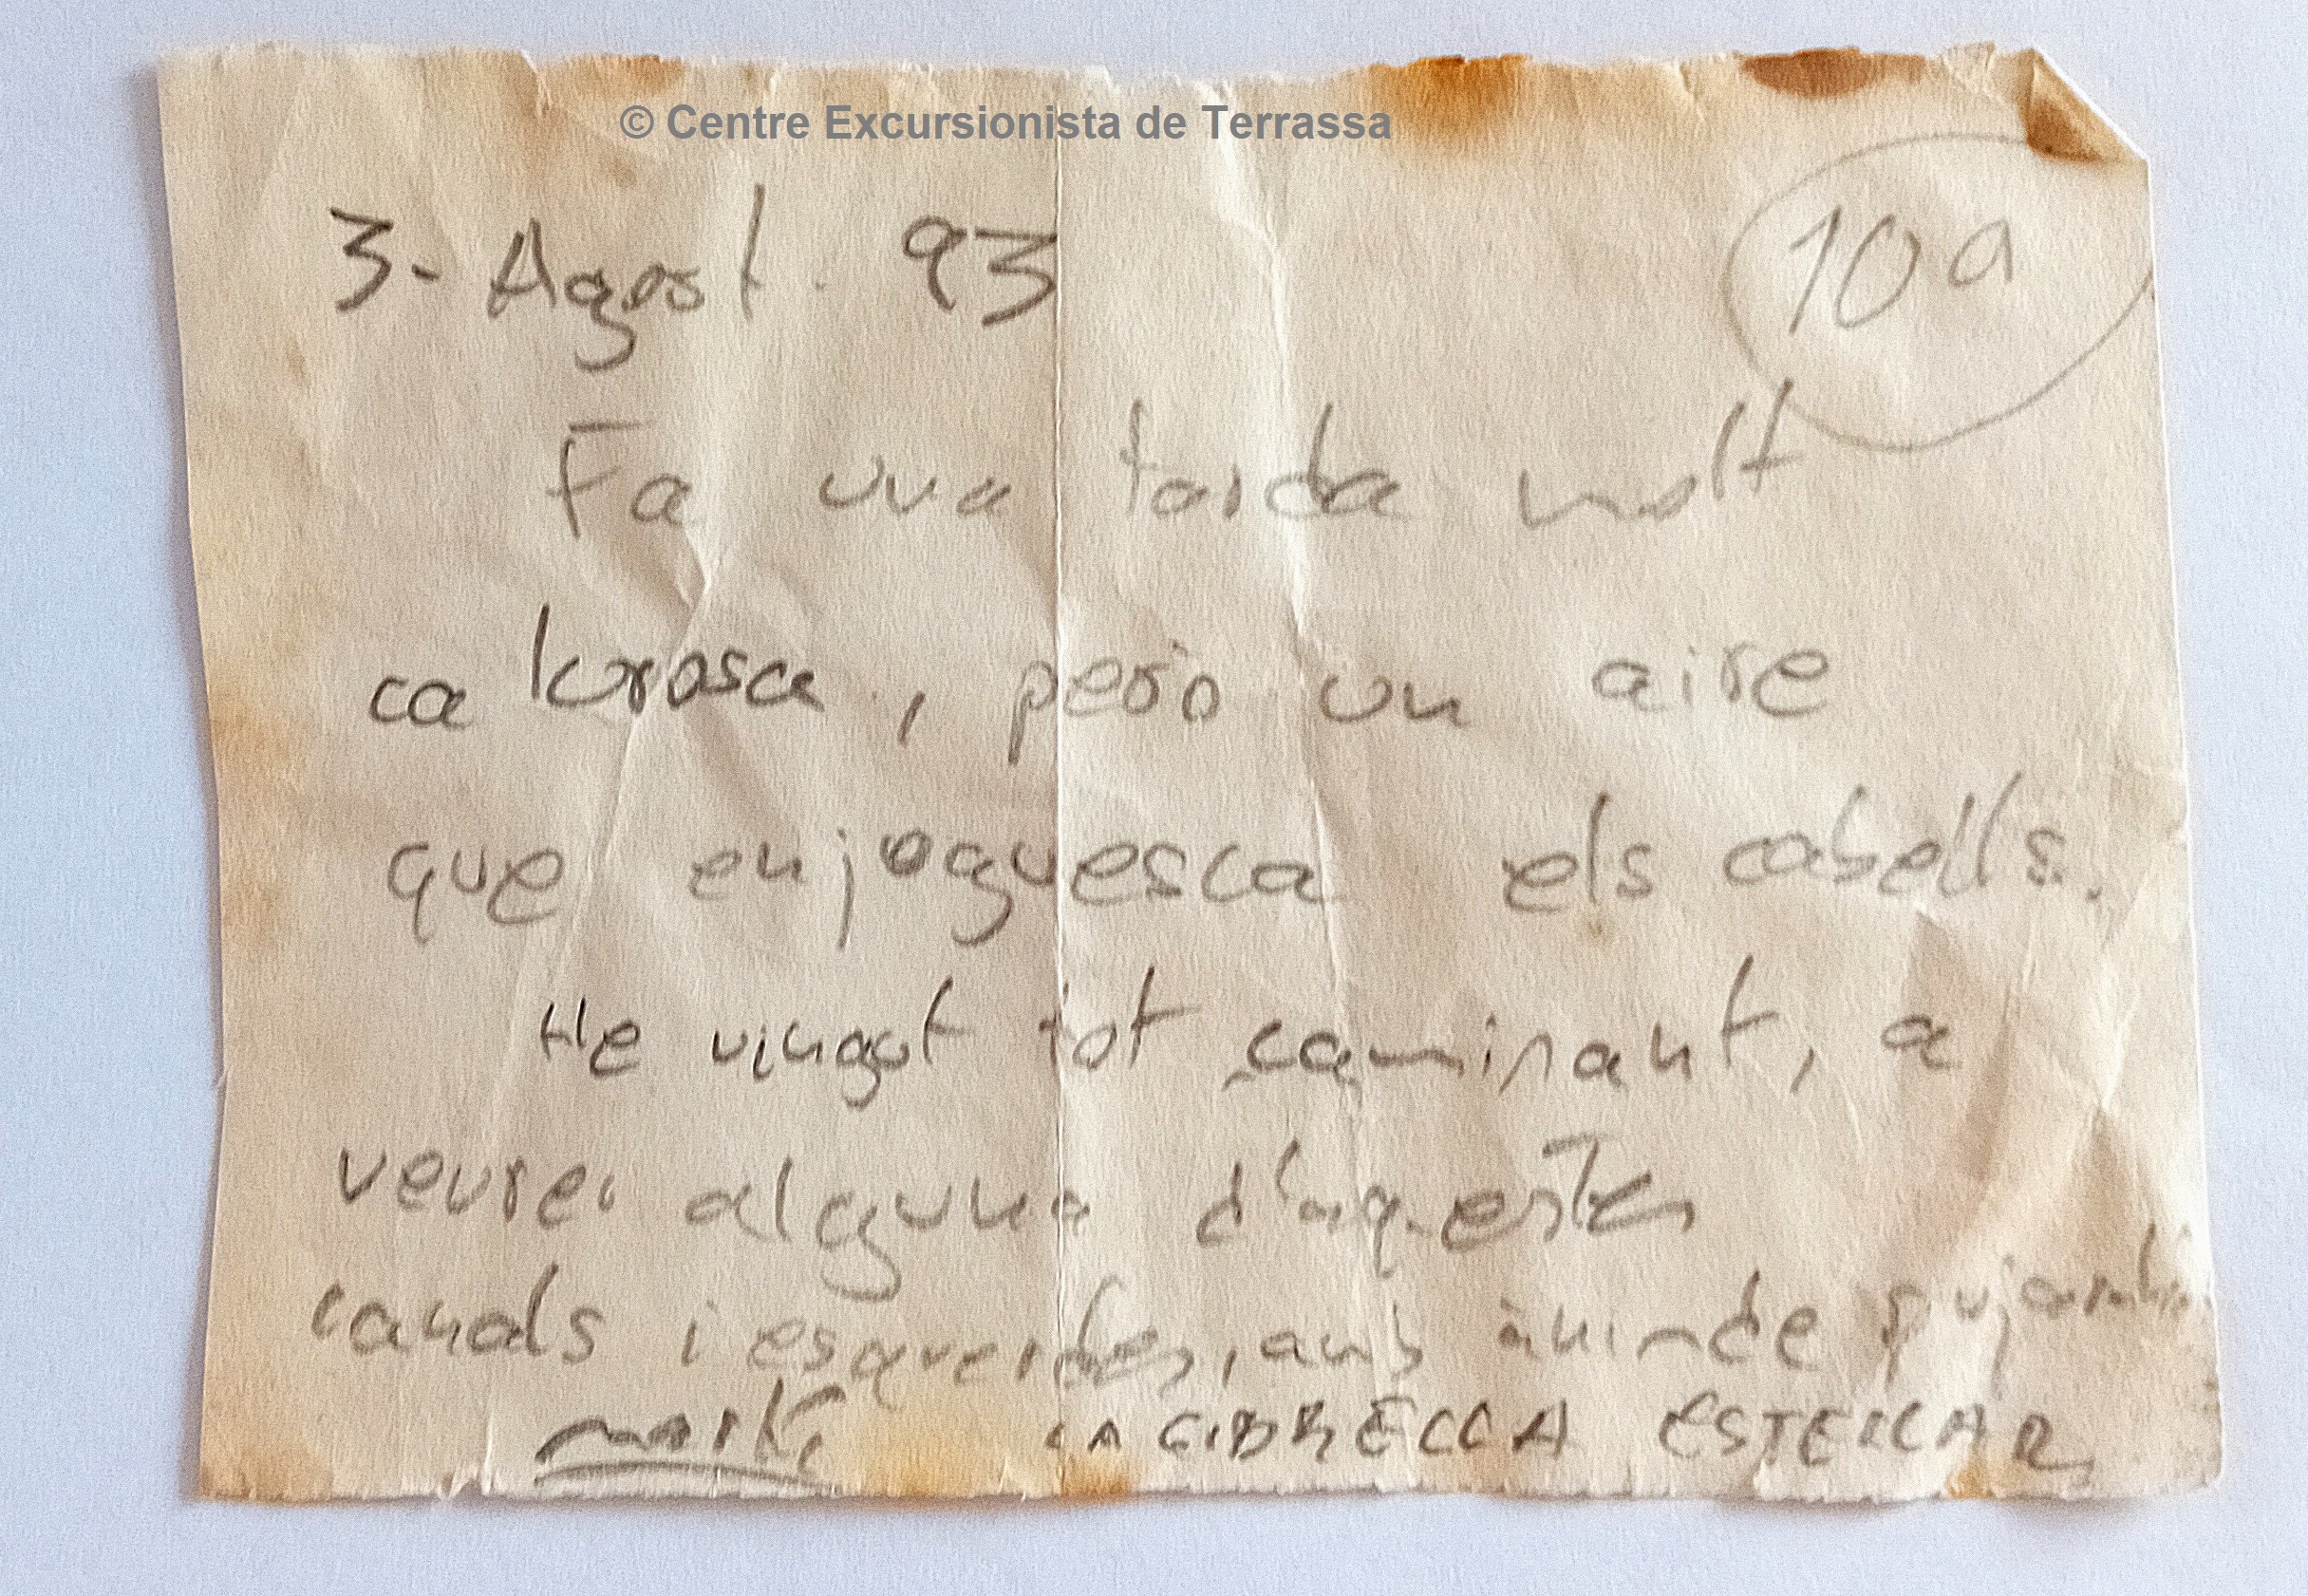 © Centre Excursionista de Terrassa
3- Agost. 93
10a
Fa una tarda molt
calorosa, però un aire
que enjoguesca els cabells.
He vingut tot caminant, a
veure alguna d'aquestes
canals i esquerdes, amb ànim de pujar-hi
martí LA GIBRELLA ESTELLAR